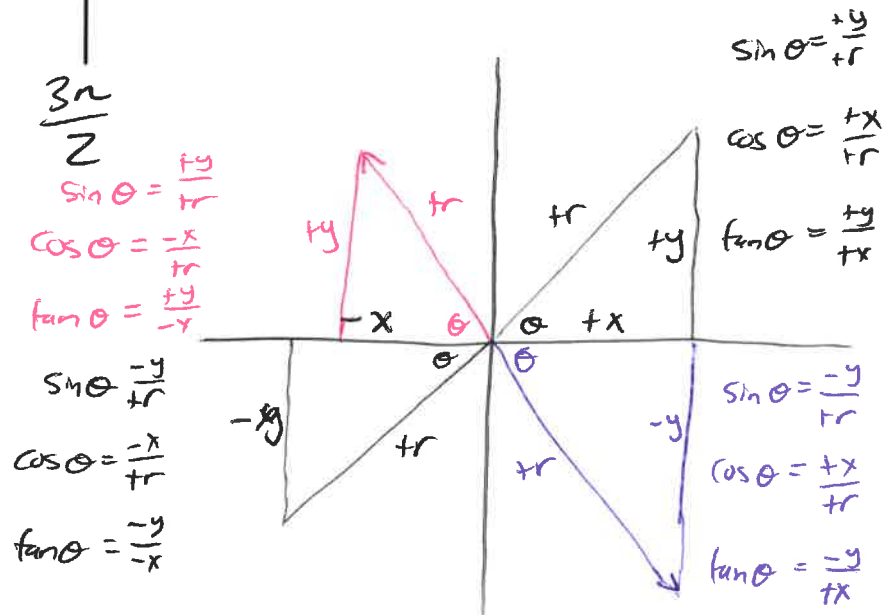 3π/2
sin θ = +y/+r
cos θ = -x/+r
tan θ = +y/-x
sin θ -y/+r
cos θ = -x/+r
tan θ = -y/-x
+y
+r
-x
θ
+r
+y
θ
+x
θ
-y
+r
θ
-y
+r
sin θ = +y/+r
cos θ = +x/+r
tan θ = +y/+x
sin θ = -y/+r
cos θ = +x/+r
tan θ = -y/+x